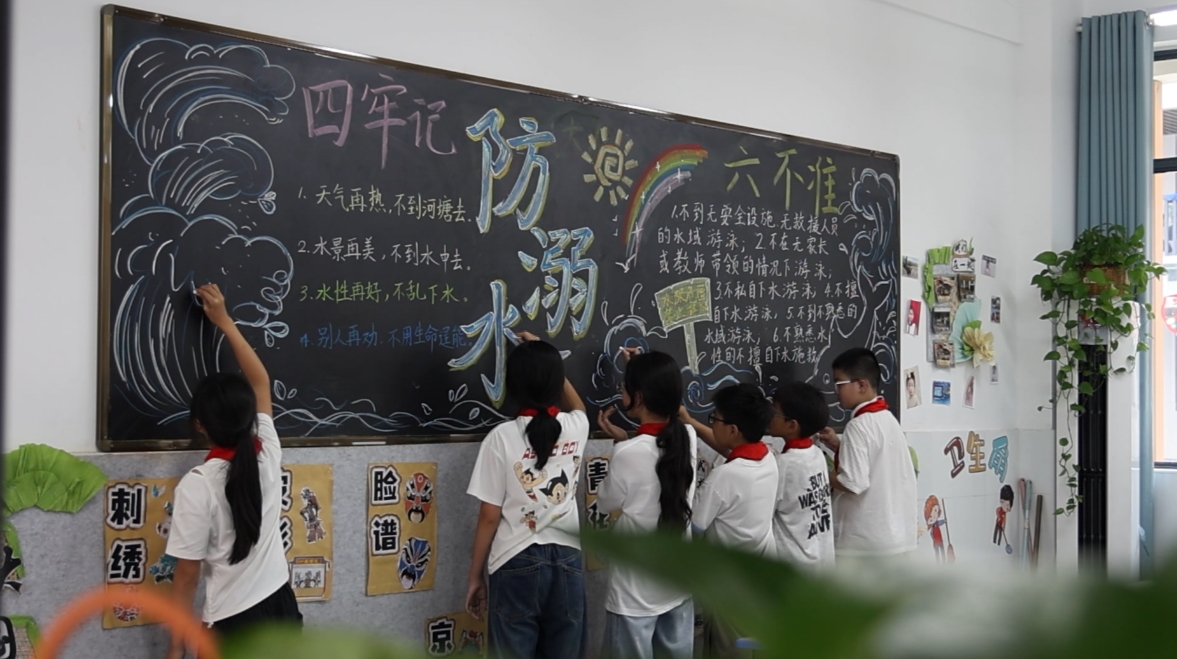 四牢记
1. 天气再热,不到河塘去.
2. 水景再美,不到水中去.
3. 水性再好,不乱下水.
4. 别人再劝.不用生命逞能
防
溺
水
六不准
1.不到无安全设施、无救援人员
的水域游泳; 2.不在无家长
或教师带领的情况下游泳;
3.不私自下水游泳; 4.不擅
自下水游泳; 5.不到不熟悉的
水域游泳; 6.不熟悉水
性的不擅自下水施救
刺
绣
脸
谱
青
京
卫生角
BUT I